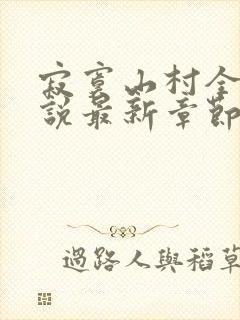 寂寞山村全
說最新章節
過路人與稻草